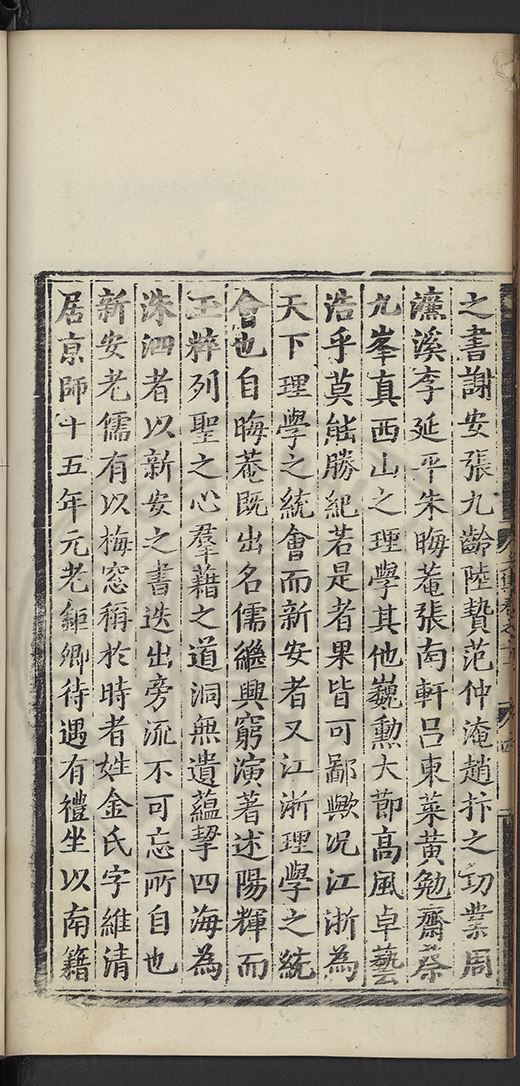 之書謝安張九齡陸贄范仲淹趙抃之功業周
濂溪李延平朱晦菴張南軒吕東萊黃勉齋蔡
九峯真西山之理學其他巍勲大節高風卓藝
浩乎莫能勝紀若是者果皆可鄙歟况江浙為
天下理學之統會而新安者又江浙理學之統
會也自晦菴既出名儒繼興窮演著述陽輝而
玉粹列聖之心羣藉之道洞無遺蘊挈四海為
洙泗者以新安之書迭出旁流不可忘所自也
新安老儒有以梅窓稱於時者姓金氏字維清
居京師十五年元老鉅卿待遇有禮坐以南籍